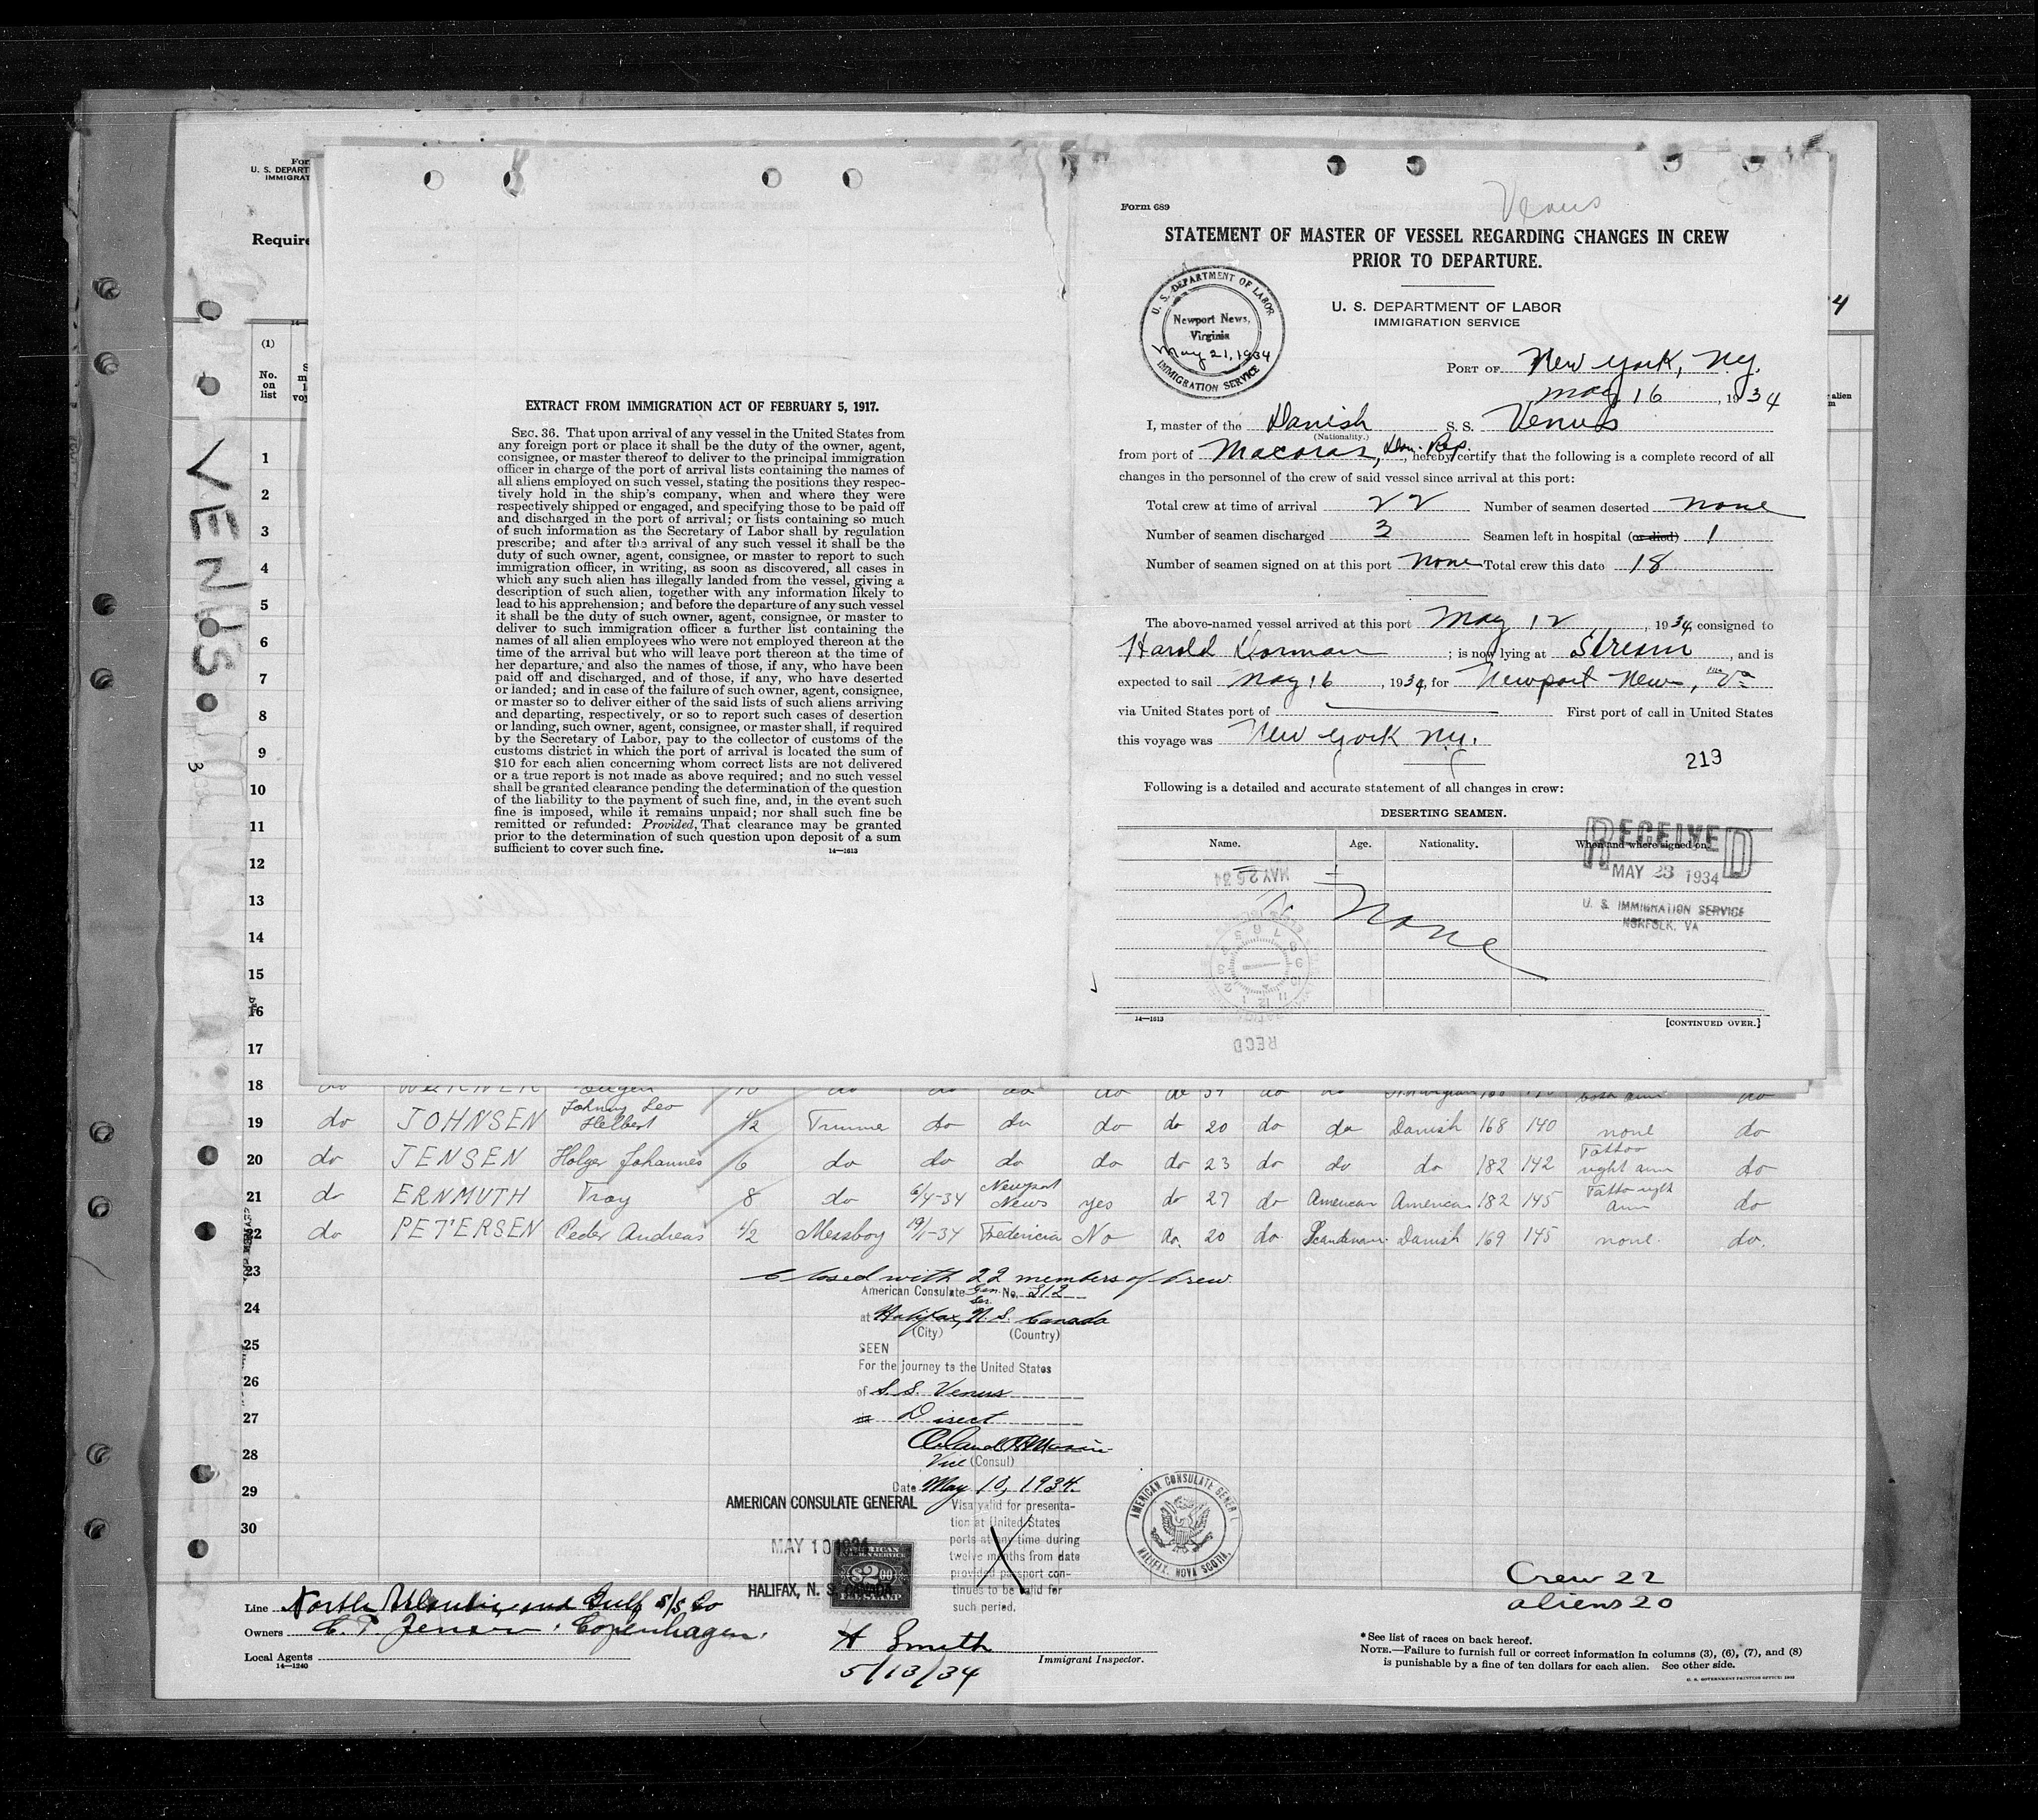 For
U. S. DEPART
IMMIGRAT
Require
(1)
No.
on
list
VENUS.
3
1
2
3
4
5
6
7
8
9
10
11
12
13
14
15
16
17
EXTRACT FROM IMMIGRATION ACT OF FEBRUARY 5, 1917.
SEC. 36. That upon arrival of any vessel in the United States from
any foreign port or place it shall be the duty of the owner, agent,
consignee, or master thereof to deliver to the principal immigration
officer in charge of the port of arrival lists containing the names of
all aliens employed on such vessel, stating the positions they respec-
tively hold in the ship's company, when and where they were
respectively shipped or engaged, and specifying those to be paid off
and discharged in the port of arrival; or lists containing so much
of such information as the Secretary of Labor shall by regulation
prescribe; and after the arrival of any such vessel it shall be the
duty of such owner, agent, consignee, or master to report to such
immigration officer, in writing, as soon as discovered, all cases in
which any such alien has illegally landed from the vessel, giving a
description of such alien, together with any information likely to
lead to his apprehension; and before the departure of any such vessel
it shall be the duty of such owner, agent, consignee, or master to
deliver to such immigration officer a further list containing the
names of all alien employees who were not employed thereon at the
time of the arrival but who will leave port thereon at the time of
her departure, and also the names of those, if any, who have been
paid off and discharged, and of those, if any, who have deserted
or landed; and in case of the failure of such owner, agent, consignee,
or master so to deliver either of the said lists of such aliens arriving
and departing, respectively, or so to report such cases of desertion
or landing, such owner, agent, consignee, or master shall, if required
by the Secretary of Labor, pay to the collector of customs of the
customs district in which the port of arrival is located the sum of
$10 for each alien concerning whom correct lists are not delivered
or a true report is not made as above required; and no such vessel
shall be granted clearance pending the determination of the question
of the liability to the payment of such fine, and, in the event such
fine is imposed, while it remains unpaid; nor shall such fine be
remitted or refunded: Provided, That clearance may be granted
prior to the determination of such question upon deposit of a sum
sufficient to cover such fine.
14—1613
Venus
Form 689
STATEMENT OF MASTER OF VESSEL REGARDING CHANGES IN CREW
PRIOR TO DEPARTURE.
U. S. DEPARTMENT OF LABOR
IMMIGRATION SERVICE
U. S. DEPARTMENT OF LABOR
Newport News,
Virginia
May 21, 1934
IMMIGRATION SERVICE
PORT OF New York, N.Y.
May 16, 1934
I, master of the Danish S. S. Venus
(Nationality.)
from port of Macoras, Dom. Rep, hereby certify that the following is a complete record of all
changes in the personnel of the crew of said vessel since arrival at this port:
Total crew at time of arrival 22 Number of seamen deserted none
Number of seamen discharged 3 Seamen left in hospital (or died) 1
Number of seamen signed on at this port none Total crew this date 18
The above-named vessel arrived at this port May 12, 1934, consigned to
Harold Dorman; is now lying at Stream, and is
expected to sail May 16, 1934, for Newport News, Va
via United States port of First port of call in United States
this voyage was New York N.Y.
219
Following is a detailed and accurate statement of all changes in crew:
DESERTING SEAMEN.
Name. Age. Nationality. When and where signed on.
None
RECEIVED
MAY 23 1934
U. S. IMMIGRATION SERVICE
NORFOLK, VA
MAY 26 34
RECD
14—1613
[CONTINUED OVER.]
4
alien
18
19 do JOHNSEN Johnny Leo Helbert 1/2 Trimmer do do do do 20 do do Danish 168 140 none do
20 do JENSEN Holger Johannes 6 do do do do do 23 do do do 182 142 Tattoo right arm do
21 do ERNMUTH Troy 8 do 6/4-34 Newport News yes do 27 do American American 182 145 Tatto right arm do
22 do PETERSEN Peder Andreas 1/2 Messboy 19/1-34 Fredericia No do. 20 do Scandinavi. Danish 169 145 none. do.
23
24
25
26
27
28
29
30
Closed with 22 members of crew.
American Consulate Gen. Ser. No. 312
at Halifax, N. S. Canada
(City) (Country)
SEEN
For the journey to the United States
of S.S. Venus
Direct
Vice (Consul)
Date May 10, 1934.
AMERICAN CONSULATE GENERAL
MAY 10 1934
HALIFAX, N. S. CANADA
Visa valid for presenta-
tion at United States
ports at any time during
twelve months from date
provided passport con-
tinues to be valid for
such period.
$2.00
FEE STAMP
AMERICAN CONSULATE GENERAL
HALIFAX, NOVA SCOTIA
Crew 22
aliens 20
Line North Atlantic and Gulf S/S Co
Owners C. P. Jensen, Copenhagen.
Local Agents
14—1240
A Smith
Immigrant Inspector.
5/13/34
*See list of races on back hereof.
NOTE.—Failure to furnish full or correct information in columns (3), (6), (7), and (8)
is punishable by a fine of ten dollars for each alien. See other side.